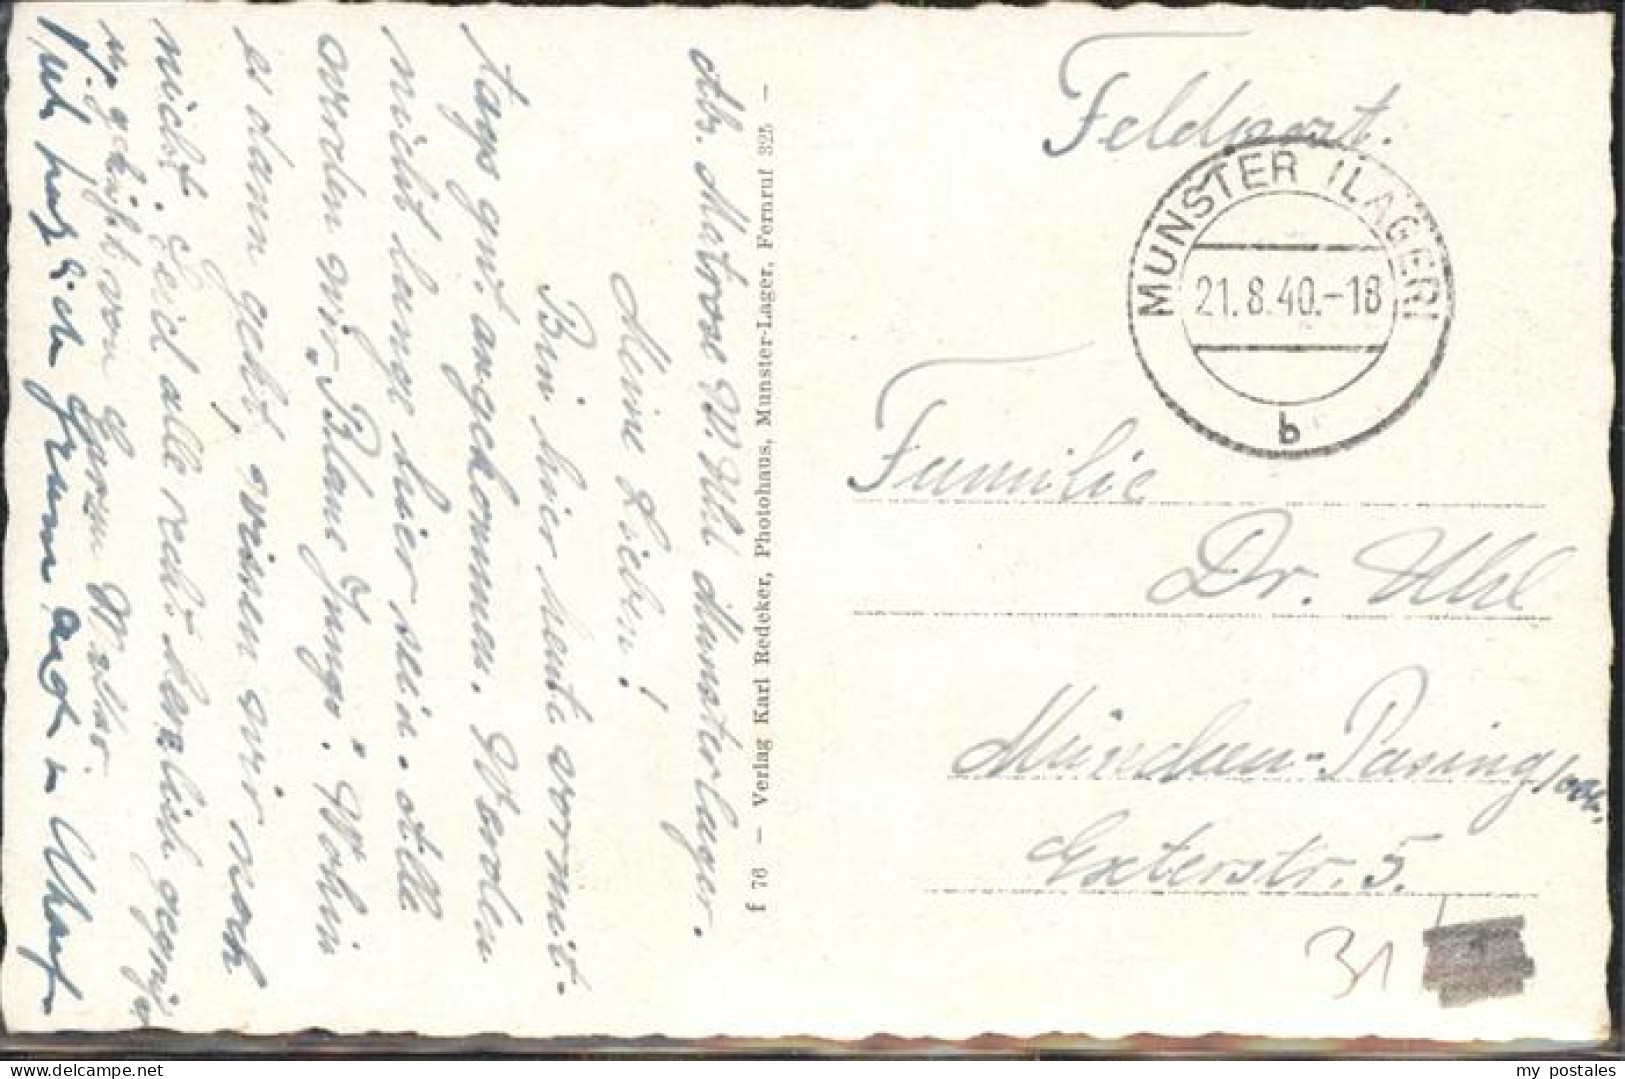 Feldpost.
MUNSTER (LAGER)
21.8.40.-18
b
Familie
Dr. Uhl
München-Pasing
Exterstr. 5.
31
f 76 — Verlag Karl Redeker, Photohaus, Munster-Lager, Fernruf 325 —
Ab. Matrose W. Uhl Munsterlager.
Meine Lieben!
Bin hier heute vormit-
tags gut angekommen. Werden
nicht lange hier sein. Alle
werden wir „Blaue Jungs". Wohin
es dann geht, wissen wir noch
nicht. Seid alle recht herzlich gegrüßt
u. geküßt von Eurem Walter.
my postales